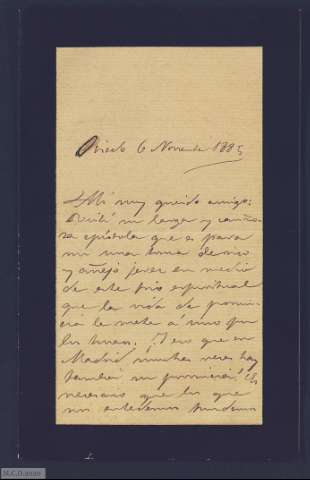 Oviedo 6 Novre de 1885
Mi muy querido amigo:
Recibí su larga y cariño-
sa epístola que es para
mi una toma de rico
y añejo jerez en medio
de este frío espiritual
que la vida de provin-
cia le mete á uno por
los huesos. Pero que en
Madrid muchas veces hay
también su provincia! Es
necesario que los que
nos entendemos
M.C.D. 2022